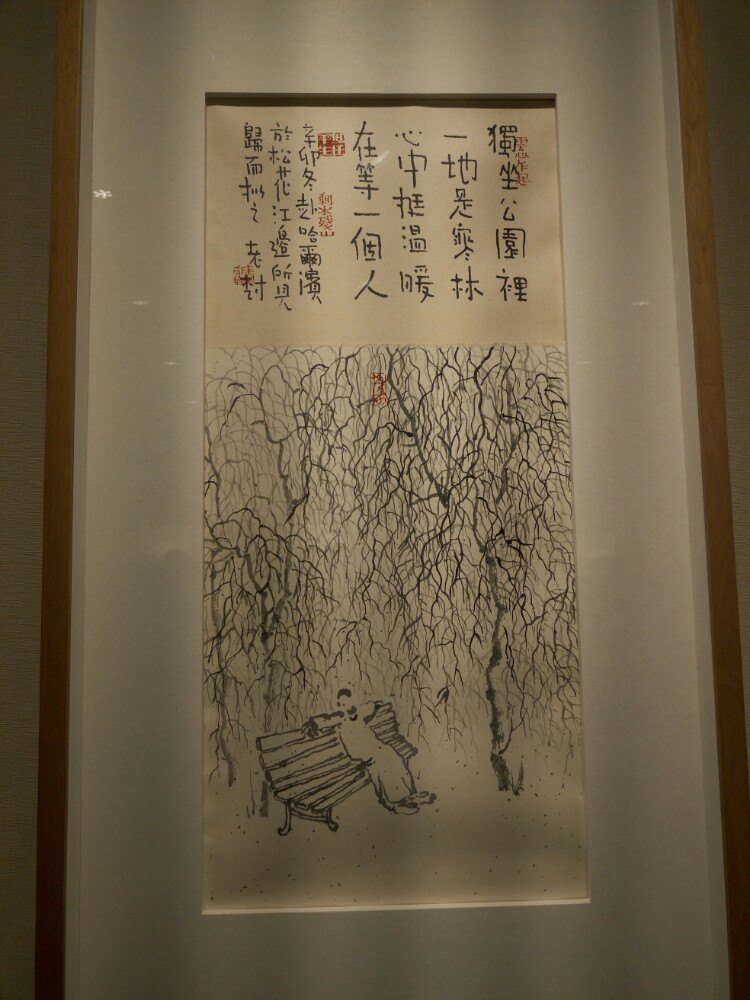 獨坐公園裡
一地是寒林
心中挺溫暖
在等一個人
辛卯冬赴哈爾濱
於松花江邊所見
歸而拟之 老树
剩水殘山